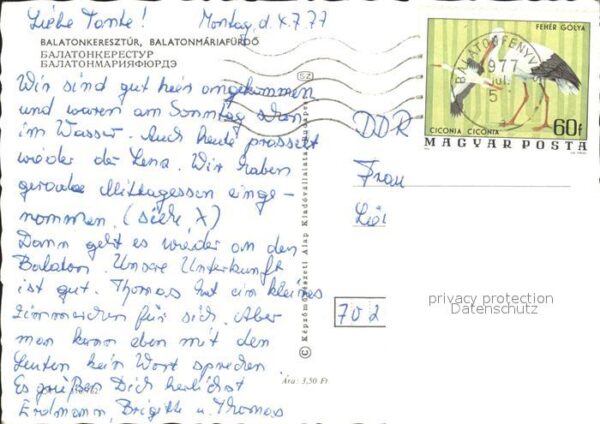 Liebe Tante! Montag, d. 4.7.77
BALATONKERESZTÚR, BALATONMÁRIAFÜRDŐ
БАЛАТОНКЕРЕСТУР
БАЛАТОНМАРИЯФЮРДЭ
Wir sind gut hier angekommen
und waren am Sonntag schon
im Wasser. Auch heute prasselt
wieder der Lena. Wir haben
gerade Mittagessen einge-
nommen. (siehe X)
Dann geht es wieder an den
Balaton. Unsere Unterkunft
ist gut. Thomas hat ein kleines
Zimmerchen für sich. Aber
man kann eben mit den
Leuten kein Wort sprechen
Es grüßen Dich herzlichst
Erdmann, Brigitte u. Thomas
SZ
© Képzőművészeti Alap Kiadóvállalata, Budapest
Ára: 3,50 Ft
FEHÉR GÓLYA
BALATONFENYV
977
JÚL.
5
CICONIA CICONIA
60f
MAGYAR POSTA
DDR
Frau
702
privacy protection
Datenschutz